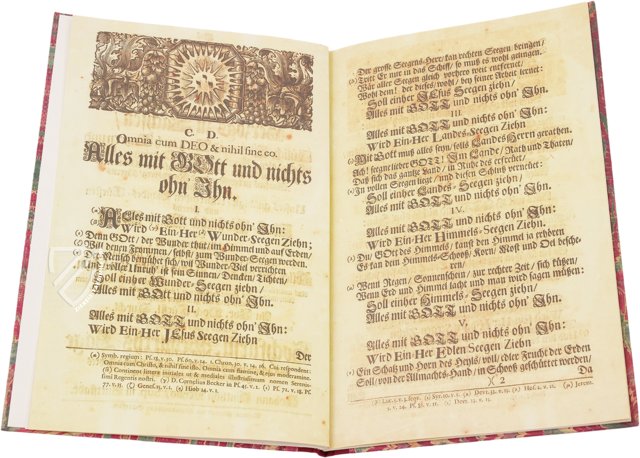 C. D.
Omnia cum DEO & nihil sine eo.
Alles mit GOtt und nichts
ohn Ihn.
I.
Alles mit Gott und nichts ohn' Ihn:
Wird Ein-Her Wunder-Seegen Ziehn;
Denn GOtt / der Wunder thut / im Himmel und auf Erden /
Will denen Frommen / selbst / zum Wunder-Seegen werden.
Der Mensch bemühet sich / mit Wunder-Viel verrichten
Und voller Unruh' ist sein Sinnen / Dencken / Tichten /
Soll einher Wunder-Seegen ziehn /
Alles mit GOtt und nichts ohn' Ihn.
II.
Alles mit GOTT und nichts ohn' Ihn:
Wird Ein-Her JEsus Seegen Ziehn
Der
(α) Symb. regium: Pf. 18. v. 30. Pf. 60. v. 14. 1. Chron. 30. v. 14. 16. Cui respondent:
Omnia cum Christo, & nihil sine isto. Omnia cum summe, & ejus moderamine.
(β) Continent litteræ initiales ut & mediales illustrissimum nomen Serenis-
simi Regentis nostri. (γ) D. Cornelius Becker in Pf. 45. v. 1. (δ) Pf. 72. v. 18. Pf.
77. v. 15. (ζ) Genes. 15. v. 1. (η) Hiob 14. v. 1.
Der grosse Seegens-Herr / kan rechten Seegen bringen /
Tritt Er nur in das Schiff / so muß es wohl gelingen.
Wär aller Seegen gleich vorhero weit entfernet /
Wohl dem! der dieses / wohl / bey seiner Arbeit lernet:
Soll einher JEsus Seegen ziehn /
Alles mit GOTT und nichts ohn' Ihn.
III.
Alles mit GOTT und nichts ohn' Ihn:
Wird Ein-Her Landes-Seegen Ziehn
Mit Gott muß alles seyn / solls Landes Herrn gerathen.
Ach! segne lieber GOTT! Im Lande / Rath und Thaten /
Daß sich das gantze Land / in Ruhe des erfreuet /
In vollen Seegen liegt / und diesen Schluß verneuet:
Soll einher Landes-Seegen ziehn /
Alles mit GOTT und nichts ohn' Ihn.
IV.
Alles mit GOTT und nichts ohn' Ihn:
Wird Ein-Her Himmels-Seegen Ziehn.
Du / GOtt des Himmels / kanst den Himmel so erhören
Es kan dem Himmels-Schooß / Korn / Most und Oel bescheh-
ren /
Wenn Regen / Sonnenschein / zur rechter Zeit / sich küssen:
Wenn Erd und Himmel lacht und man wird sagen müssen:
Soll einher Himmels-Seegen ziehn /
Alles mit GOTT und nichts ohn' Ihn.
V.
Alles mit GOTT und nichts ohn' Ihn:
Wird Ein-Her Edlen Seegen Ziehn
Ein Schatz und Horn des Heyls / voll / edler Frucht der Erden
Soll / von der Allmachts-Hand / in Schooß geschüttet werden /
)( 2
Da